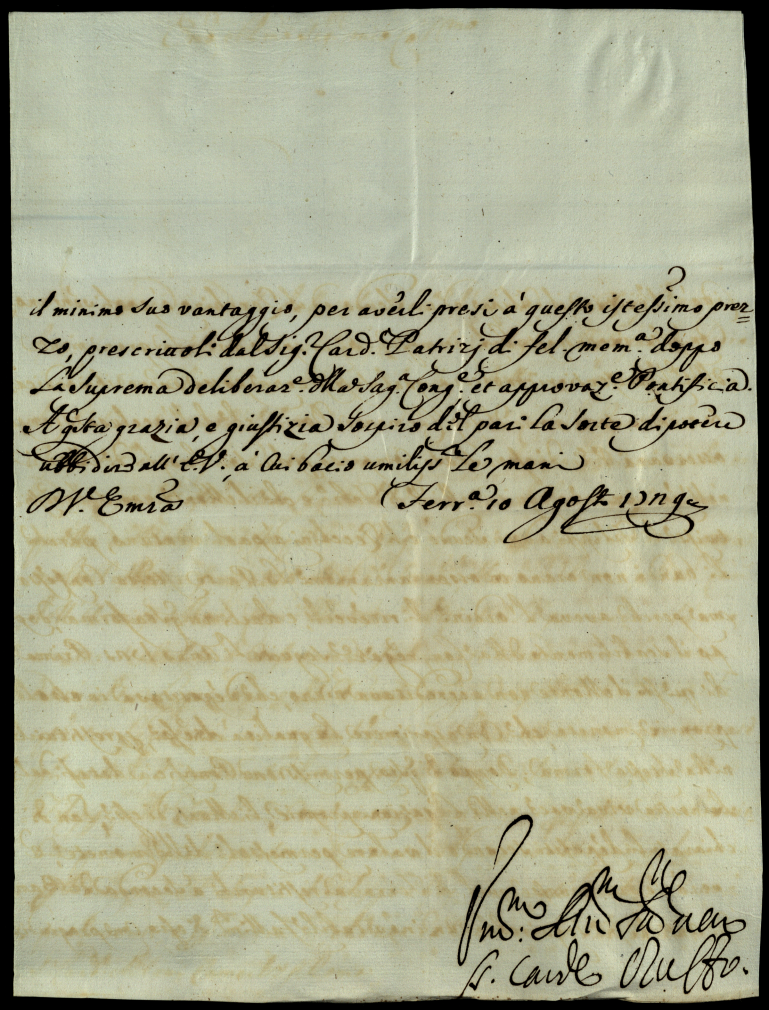 il minimo suo vantaggio, per averli presi à questo istessimo prez=
zo, prescrittoli dal Sig.r Card. Patrizj di fel. mem.a doppo
La Suprema deliberaz.e della Sag.a Cong.e et approvaz.e Pontificia.
A q̃sta grazia, e giustizia sospiro del pari la sorte di potere
ubbidire all' E.V., à cui bacio umiliss.e le mani
D. V.ra Emza Ferr.a 10 Agosto
Um.mo
S. Card. Ruffo.